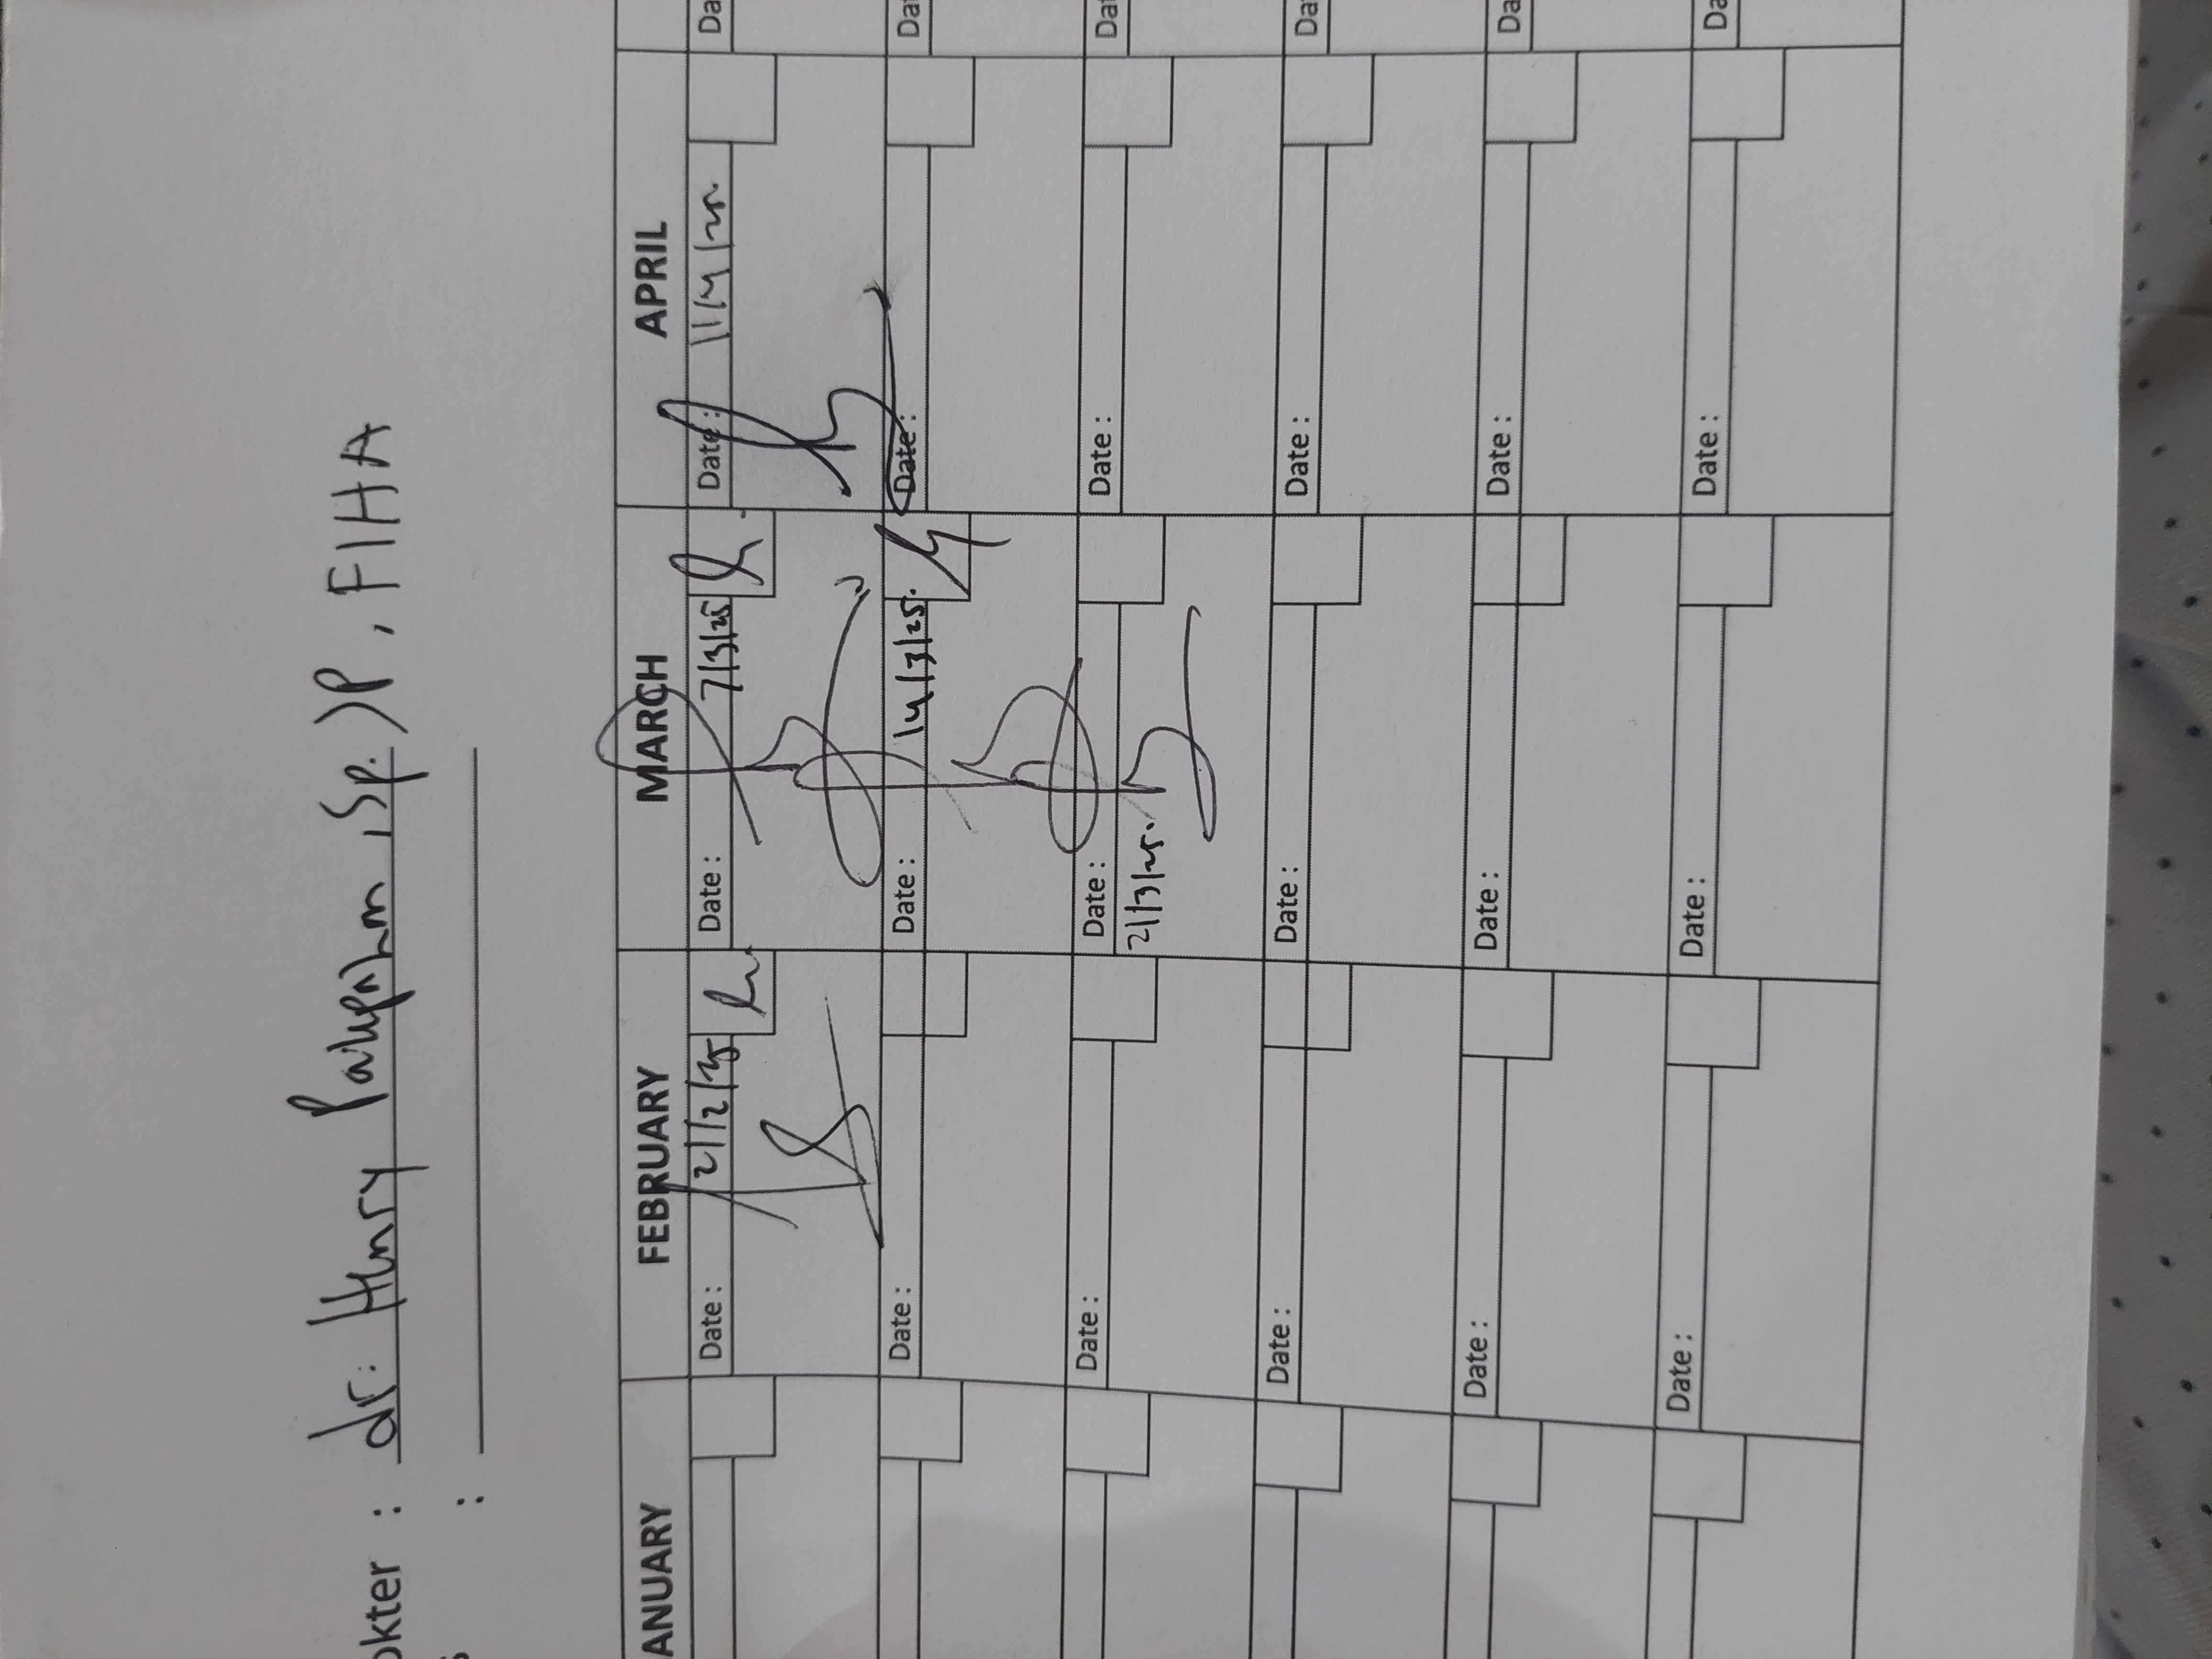 okter : dr. Henry Sp. JP, FIHA
:
ANUARY FEBRUARY MARCH APRIL
Date : 21/2/25 Date : 7/3/25 Date : 11/4/25 Da
Date : Date : 14/3/25. Date : Dat
Date : Date : Date : Dat
21/3/25.
Date : Date : Date : Dat
Date : Date : Date : Da
Date : Date : Date : Da